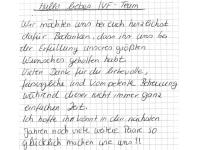 Hallo liebes IVF-Team
Wir möchten uns bei euch herzlichst
dafür bedanken, dass ihr uns bei
der Erfüllung unseres größten
Wunsches geholfen habt.
Vielen Dank für die liebevolle,
fürsorgliche und kompetente Betreuung
während dieser nicht immer ganz
einfachen Zeit.
Ich hoffe ihr könnt in den nächsten
Jahren noch viele weitere Paare so
glücklich machen wie uns!!